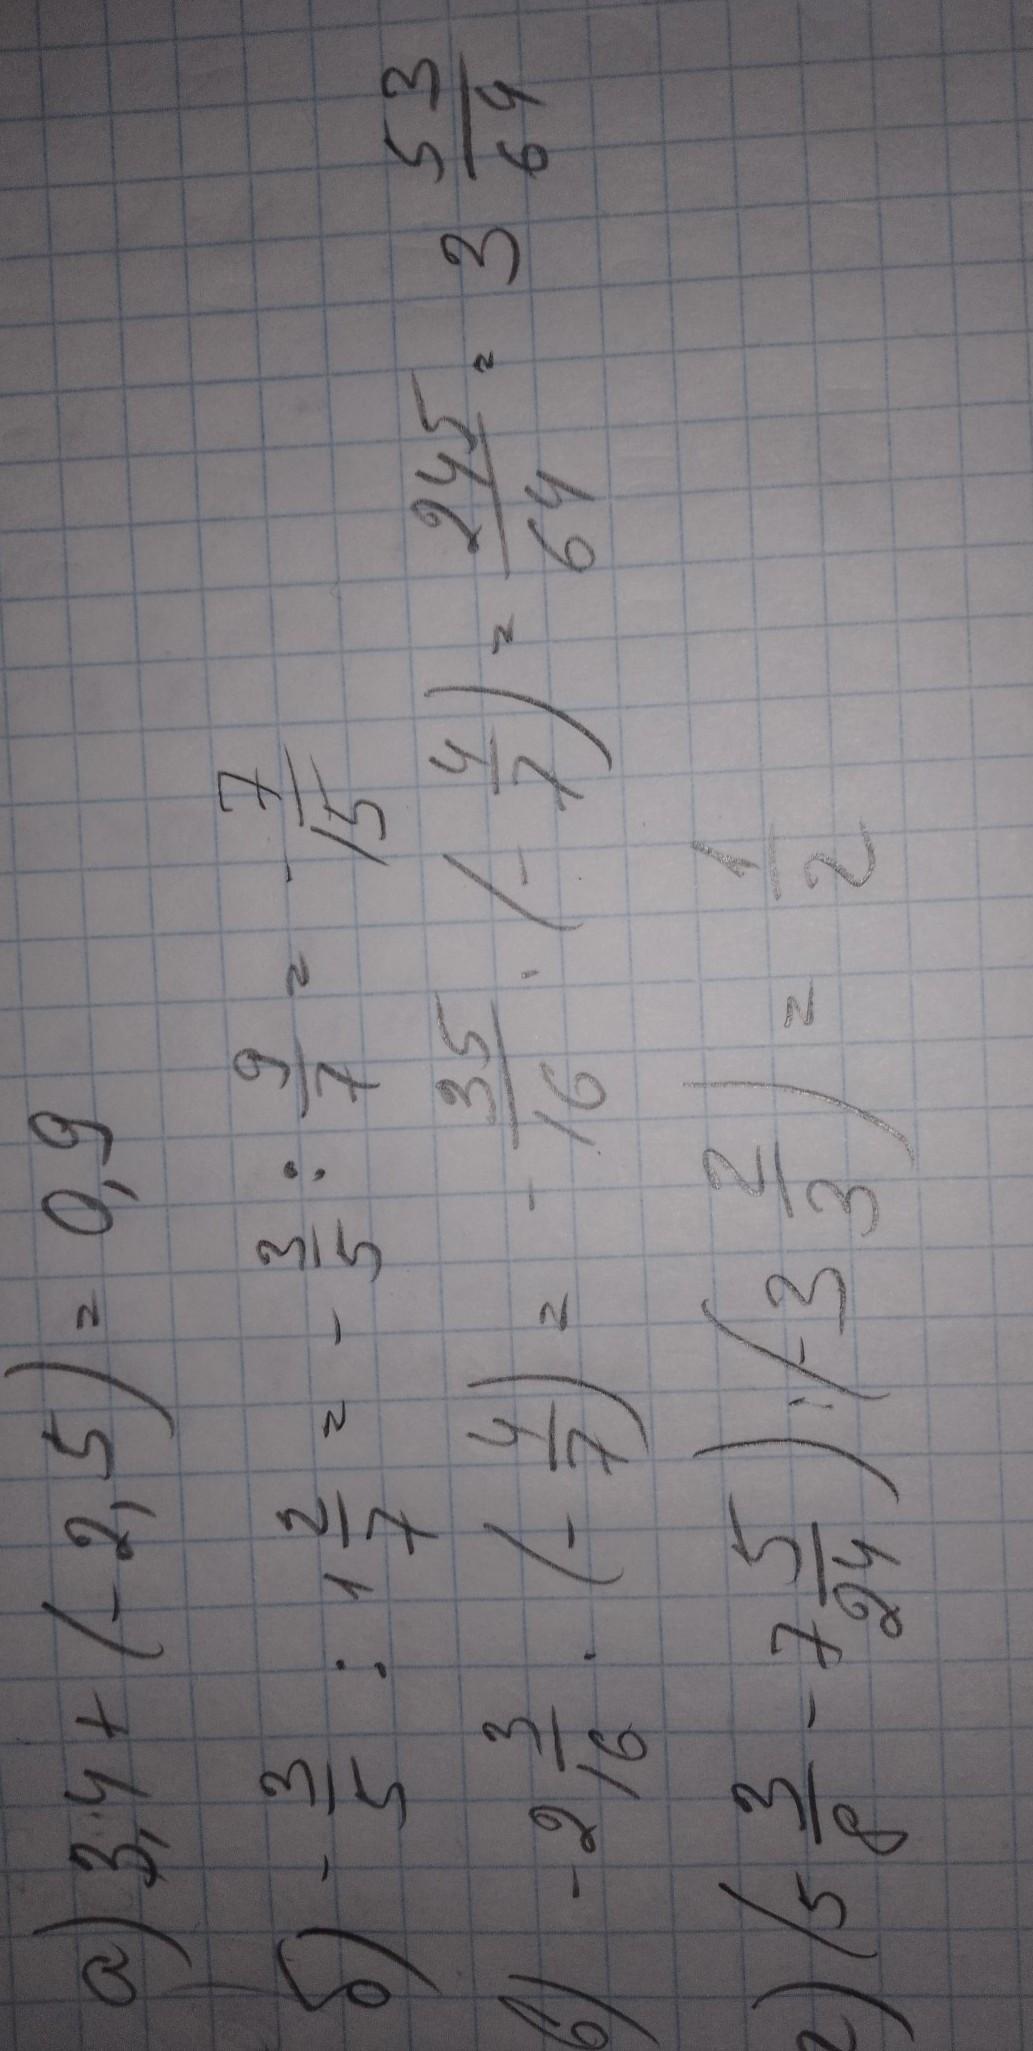 а) 3,4 + (-2,5) = 0,9
б) - 3/5 : 1 2/7 = - 3/5 : 9/7 = - 7/15
в) -2 3/16 · (- 4/7) = - 35/16 · (- 4/7) = 245/64 = 3 53/64
г) (5 3/8 - 7 5/24) : (-3 2/3) = 1/2